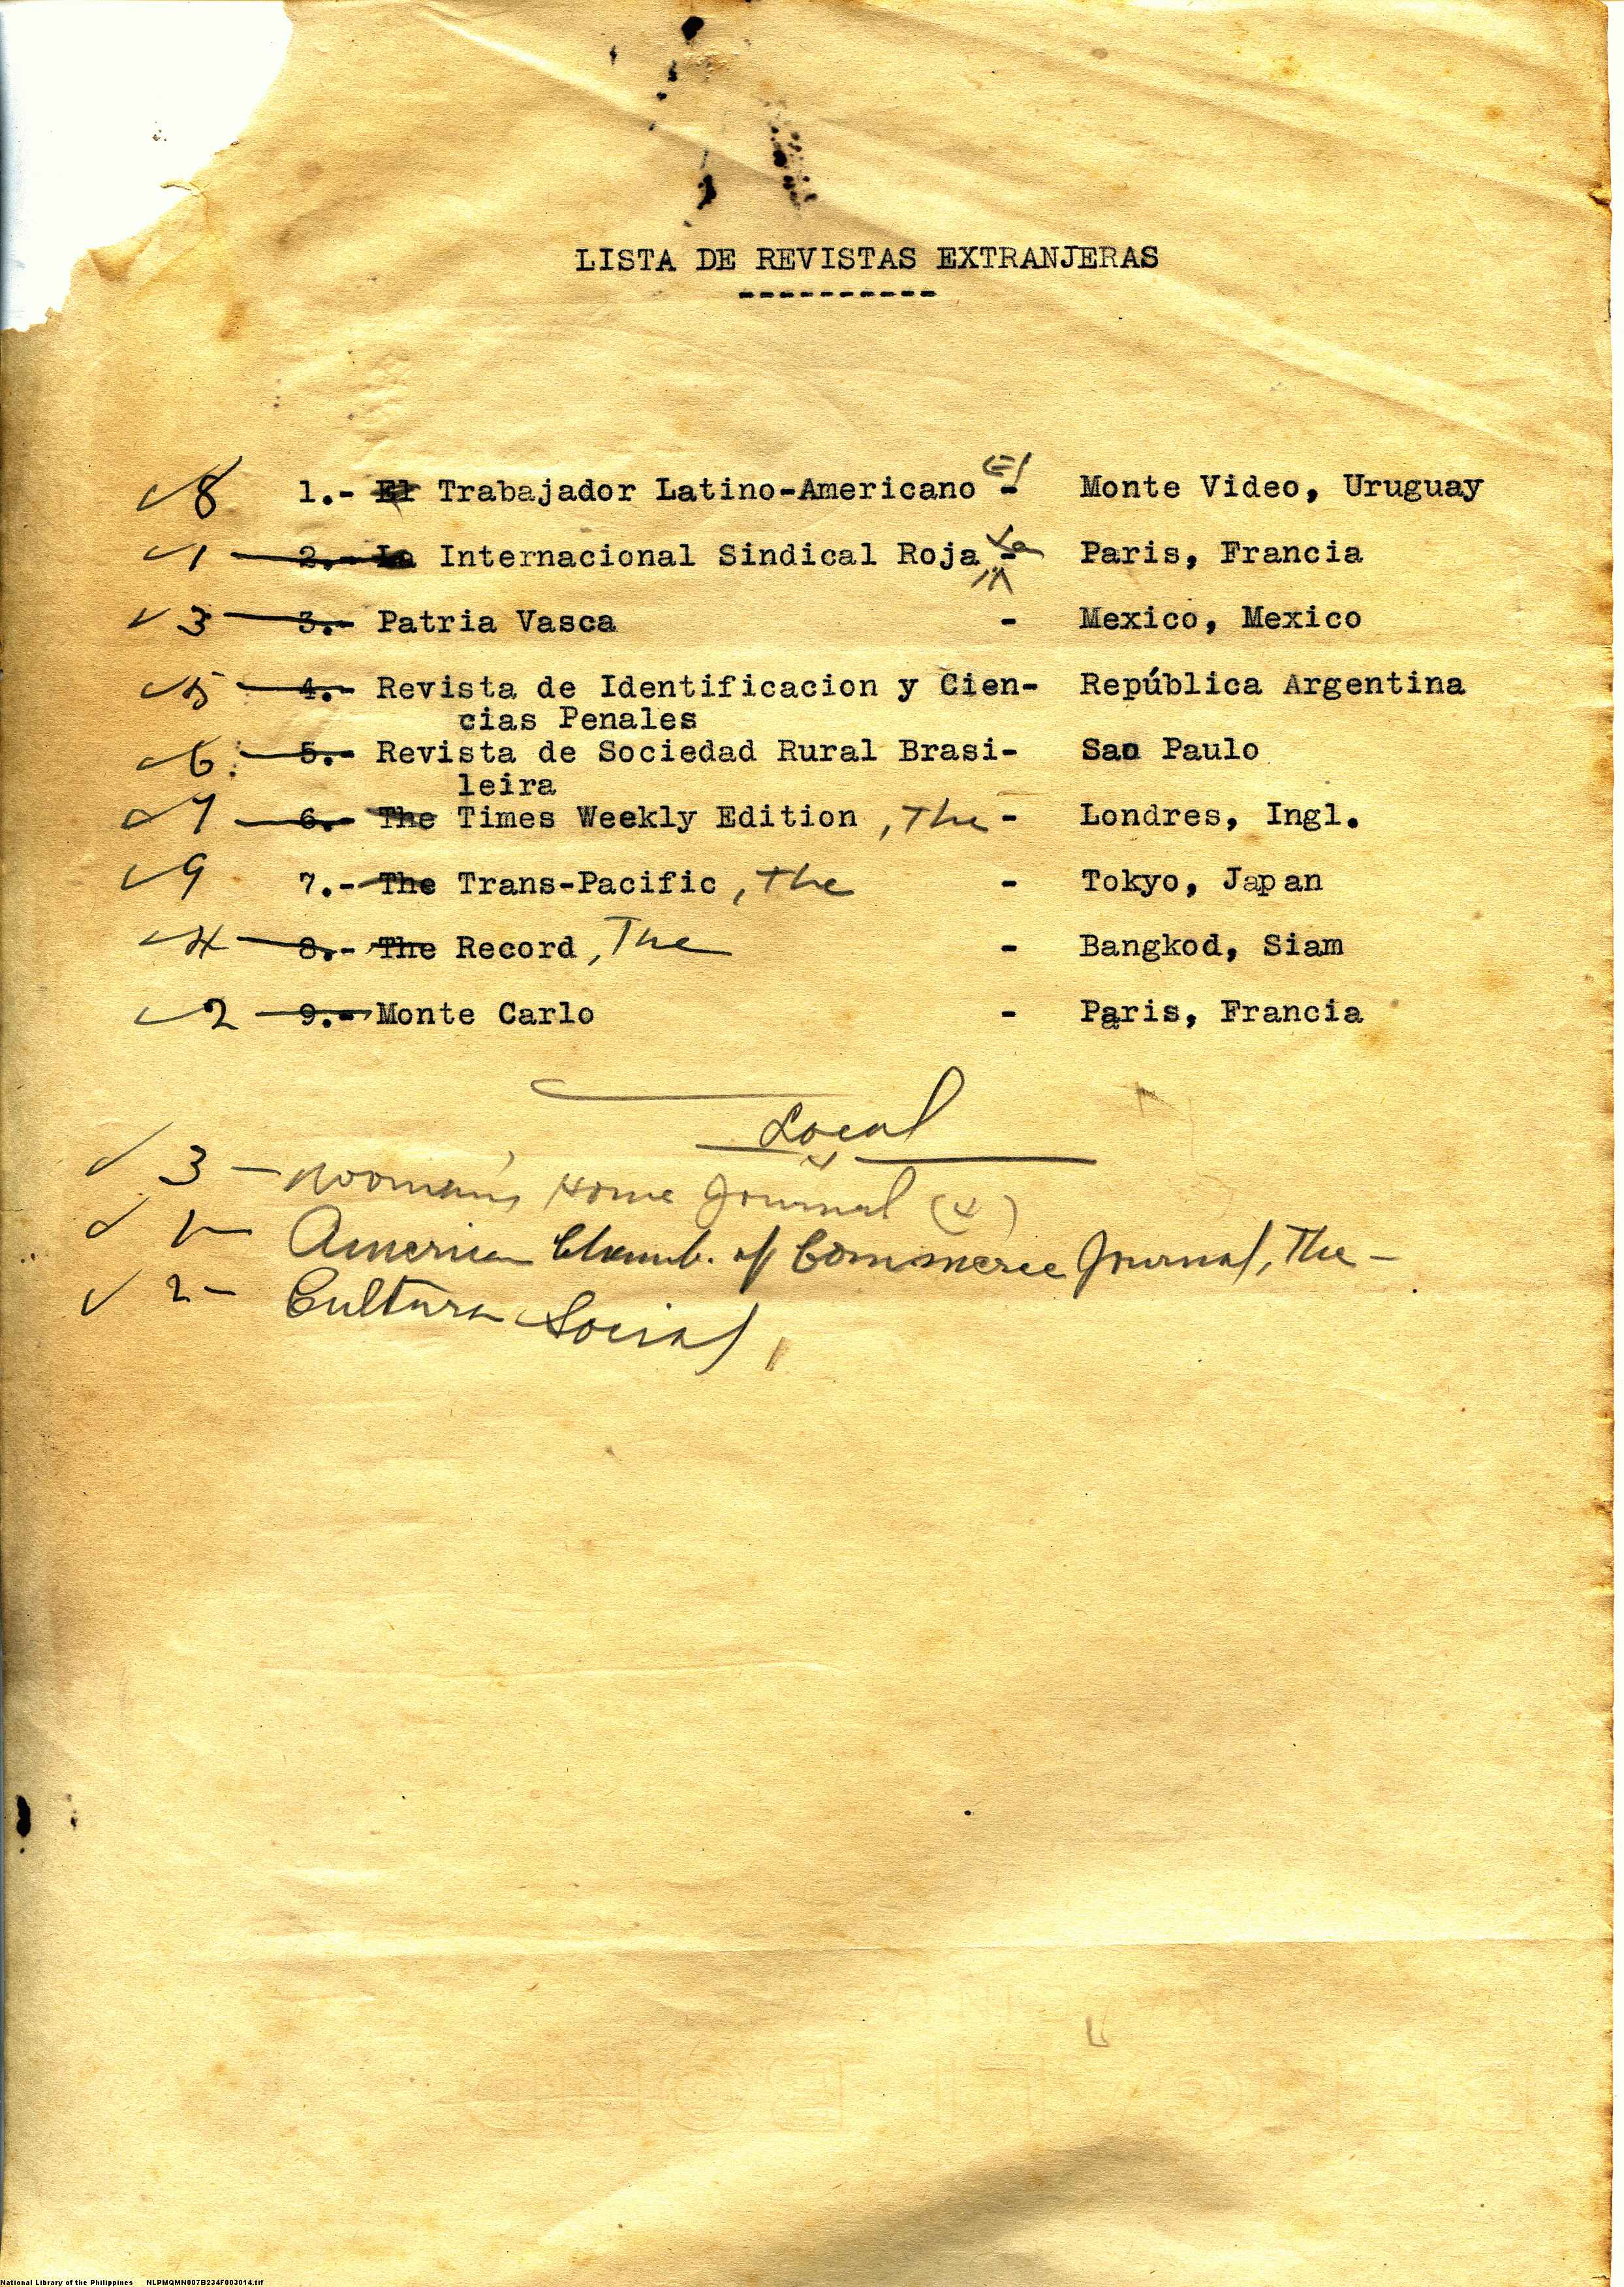 LISTA DE REVISTAS EXTRANJERAS
----------
✓8 1.- El Trabajador Latino-Americano El - Monte Video, Uruguay
✓1 2.- La Internacional Sindical Roja La - Paris, Francia
✓3 3.- Patria Vasca - Mexico, Mexico
✓5 4.- Revista de Identificacion y Cien- República Argentina
cias Penales
✓6. 5.- Revista de Sociedad Rural Brasi- Sao Paulo
leira
✓7 6.- The Times Weekly Edition, The - Londres, Ingl.
✓9 7.- The Trans-Pacific, the - Tokyo, Japan
✓4 8.- The Record, The - Bangkod, Siam
✓2 9.- Monte Carlo - Paris, Francia
Local
✓ 3 - Wooman's Home Journal (4)
✓ 1- American Chamb. of Commerce Journal, The -
✓ 2- Cultura Social
National Library of the Philippines NLPMQMN007B234F003014.tif